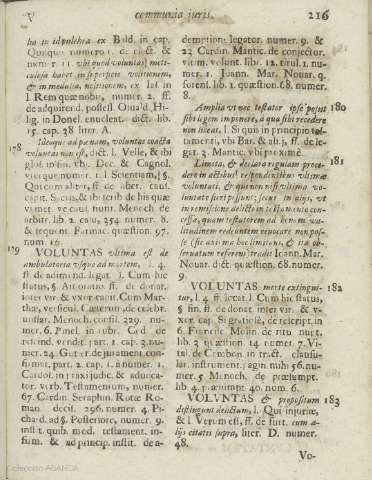 V communia juris. 216
ho in id pulchra ex Bald. in cap.
Quoniam numero 1. de elect. &
numer. 11. ubi quod voluntas meti-
culosa haret in se perpetuò
I. Rem quæ nobis, numer. 2. ff.
de adquirend. possess. Osuald. Hi-
lig. in Donel. enucleat. dict. lib.
15. cap. 38 liter. A.
178 Ideoque ad pœnam, voluntas coacta
voluntas non est, dict. l. Velle, & ibi
glos. in fin. vbi Dec. & Cagnol.
vterque numer. 1. l. Scientiam, §.
Qui cum aliter, ff. de
capit. Sacris, & ibi
vi met. ve caus. Menoch. de
arbitr. lib. 2. casu, 254 numer. 8.
& sequent. Farinac. quæstion. 97.
num. 16.
179 VOLUNTAS vltima est de
ambulatoria vsque ad mortem, l. 4.
ff. de adimend. legat. l. Cum hic
status, §. Ait oratio. ff. de donat.
inter vir. & vxor. caput. Cum Mar-
thæ, versicul. Cæterum, de celebr.
missar. Menoch. consil. 229. nu-
mer. 6. Pinel. in rubr. Cod. de
rescind. vendit. part. 1. cap. 2. nu-
mer. 24. Gutier. de jurament. con-
firmat. part. 2. cap. 1. à numer. 1.
Cardos. in praxi judic. & advoca-
tor. verb. Testamentum, numer.
67. Cardin. Seraphin. Rotæ Ro-
man. decis. 296. numer. 4. Pi-
chard. ad §. Posteriore, numer. 9.
instit. quib. med. testament. in-
firm. & ad princip. instit. de a-
demptione legator. numer. 9. &
22 Cardin. Mantic. de conjectur.
vltim. volunt. lib. 12. titul. 1. nu-
mer. 1. Joann. Mar. Novar. q.
forens. lib. 1. quæstion. 68. numer.
8.
Amplia vt nec testator ipse possit 180
sibi legem imponere, à qua sibi recedere
non liceat, l. Si quis in principio tes-
tamenti, vbi Bar. & alij, ff. de le-
gat. 3. Mantic. vbi proximè.
Limita, & declara regulam proce- 181
dere in actibus respondentibus vltimæ
voluntati, & qui non nisi vltima vo-
luntate fieri possunt; secus in alijs, vt
in remissione delicti in testamento con-
cessa, quam testatorem ad bonam va-
litudinem redeuntem revocare non pos-
se (sic axioma hoc limitans, & ita ob-
servatum referens) tradit Joann. Mar.
Novar. dict. quæstion. 68. numer.
9.
VOLUNTAS morte extingui- 182
tur, l. 4. ff. locat. l. Cum hic status,
§ fin. ff. de donat. inter vir. & v-
xor. cap. Si gratiosè, de rescript. in
6. Francisc. Molin. de ritu nupt.
lib. 3 quæstion. 14. numer. 7. Vi-
tal. de Camban. in tract. clausu-
lar. instrument. pagin. mihi 56. nu-
mer. 5 Menoch. de præsumpt.
lib. 4. præsumpt. 40. num. 6.
VOLUNTAS & propositum 183
distingunt delictum, l. Qui injuriæ,
& l. Verum est, ff. de furt. cum a-
lijs citatis supra, liter. D. numer.
48.
Vo-
Colección ABANCA